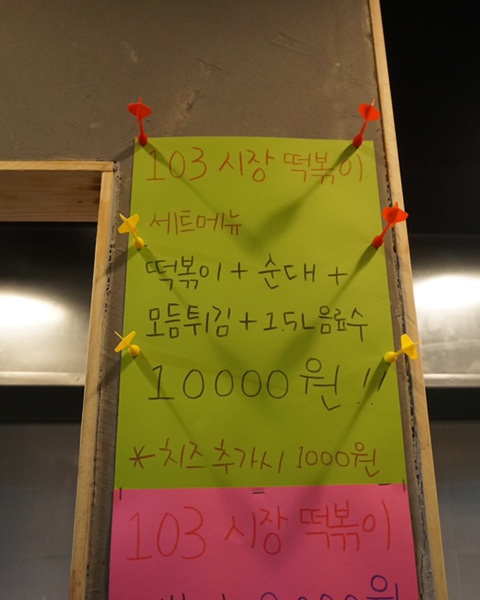 103 시장 떡볶이
세트메뉴
떡볶이 + 순대 +
모듬튀김 + 1.5L 음료수
10000원 !!
* 치즈 추가시 1000원
103 시장 떡볶이